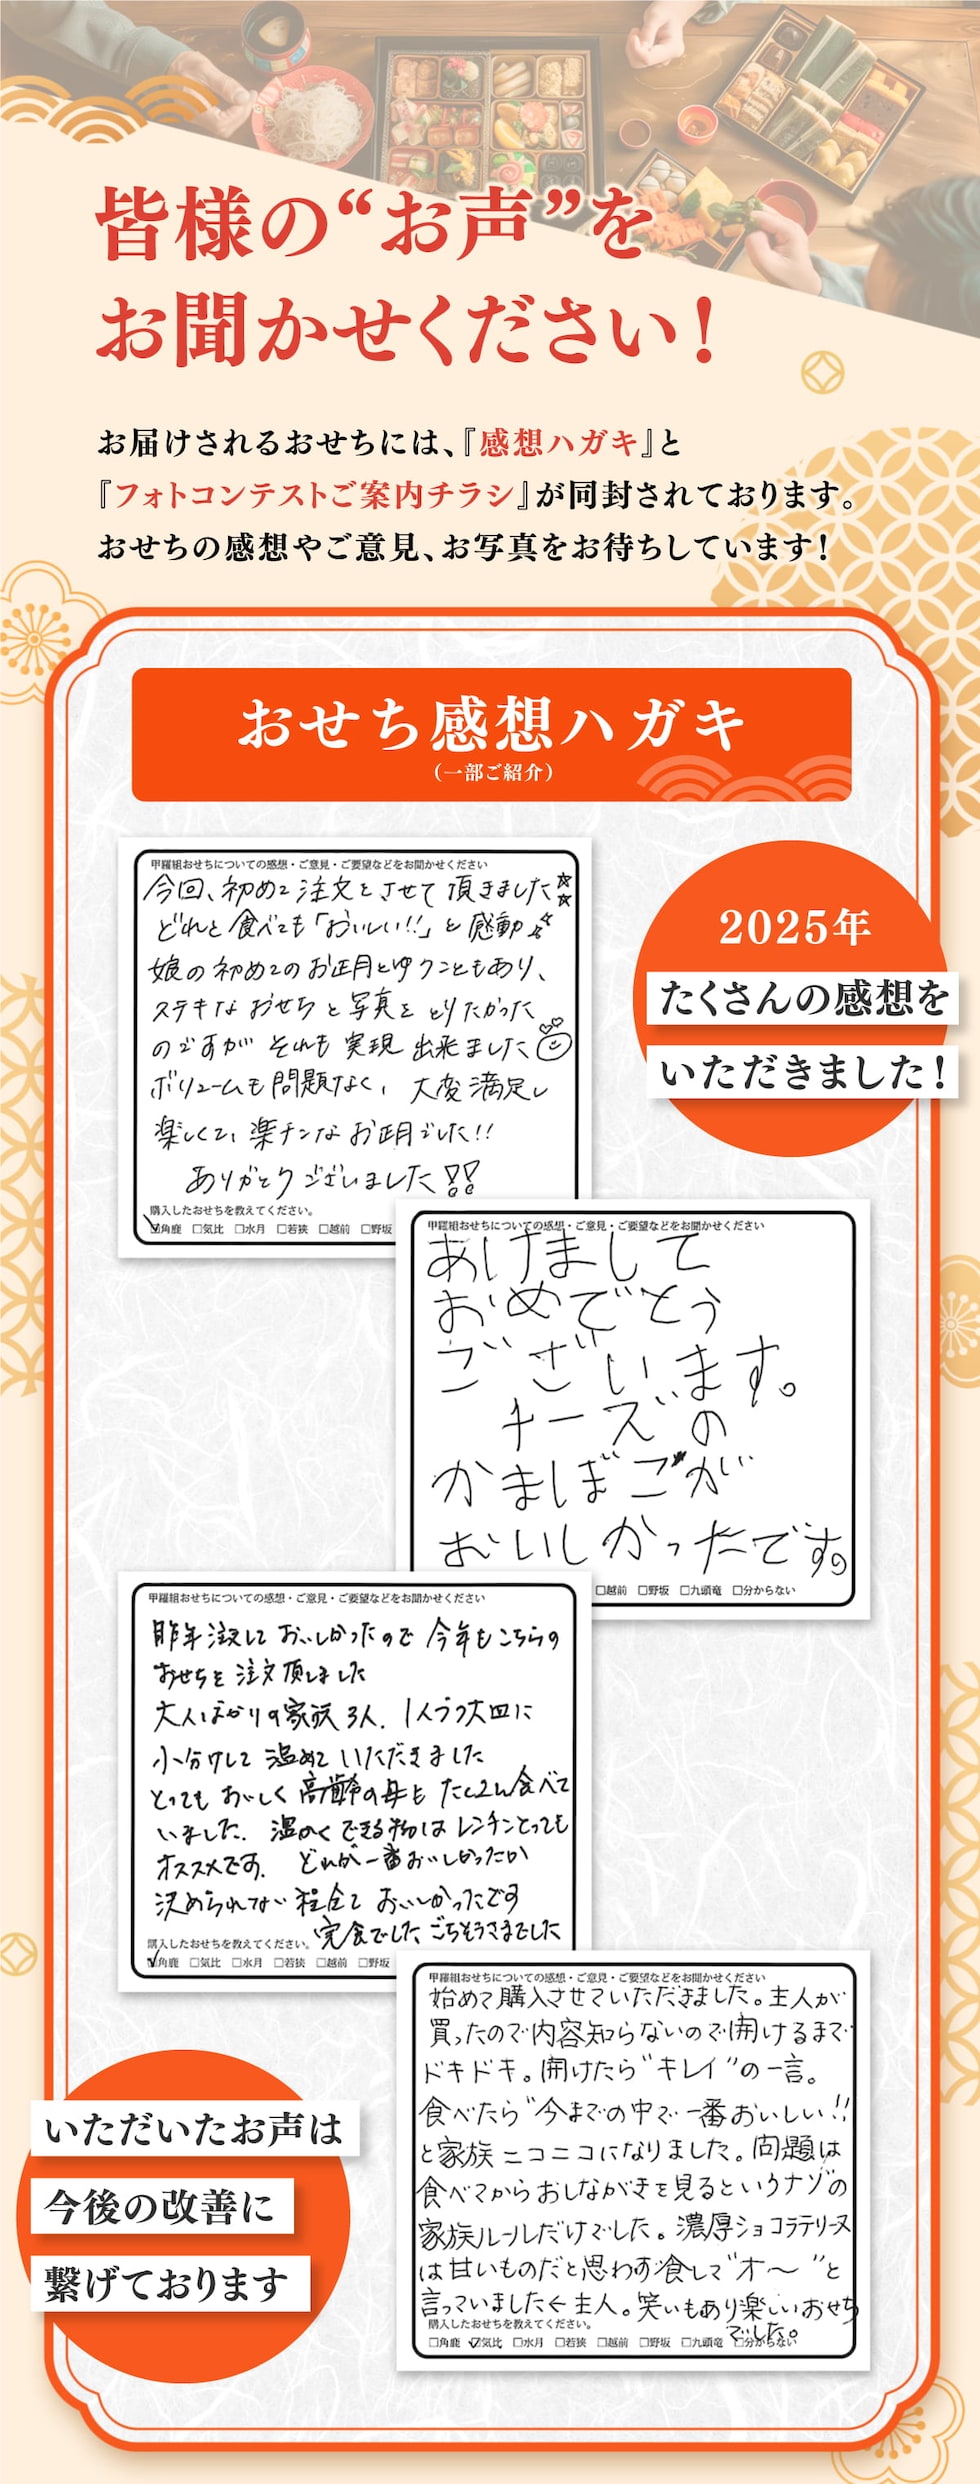 皆様の“お声”を
お聞かせください！
お届けされるおせちには、『感想ハガキ』と
『フォトコンテストご案内チラシ』が同封されております。
おせちの感想やご意見、お写真をお待ちしています！
おせち感想ハガキ
（一部ご紹介）
2025年
たくさんの感想を
いただきました！
甲羅組おせちについての感想・ご意見・ご要望などをお聞かせください
今回、初めて注文をさせて頂きました☆☆
どれを食べても「おいしい!!」と感動
娘の初めてのお正月とゆうこともあり、
ステキなおせちと写真をとりたかった
のですがそれも実現出来ました
ボリュームも問題なく、大変満足し
楽しくて、楽チンなお正月でした!!
ありがとうございました!!
購入したおせちを教えてください。
☑角鹿 □気比 □水月 □若狭 □越前 □野坂
甲羅組おせちについての感想・ご意見・ご要望などをお聞かせください
あけまして
おめでとう
ございます。
チーズの
かまぼこが
おいしかったです。
□越前 □野坂 □九頭竜 □分からない
甲羅組おせちについての感想・ご意見・ご要望などをお聞かせください
昨年注文して おいしかったので 今年もこちらの
おせちを 注文頂しました
大人ばかりの家族3人、1人づつ大皿に
小分けして 温めて いただきました
とってもおいしく 高齢の母も たくさん食べて
いました。温めくできる物はレンチンとっても
オススメです。どれが一番おいしかったか
決められない程全ておいしかったです
完食でした ごちそうさまでした
購入したおせちを教えてください。
☑角鹿 □気比 □水月 □若狭 □越前 □野坂
甲羅組おせちについての感想・ご意見・ご要望などをお聞かせください
始めて購入させていただきました。主人が
買ったので内容知らないので開けるまで
ドキドキ。開けたら“キレイ”の一言。
食べたら“今までの中で一番おいしい!!
と家族ニコニコになりました。問題は
食べてからおしながきを見るというナゾの
家族ルールだけでした。濃厚ショコラテリーヌ
は甘いものだと思わず食して“オ〜”と
言っていました←主人。笑いもあり楽しいおせち
でした。
購入したおせちを教えてください。
□角鹿 ☑気比 □水月 □若狭 □越前 □野坂 □九頭竜 □分からない
いただいたお声は
今後の改善に
繋げております